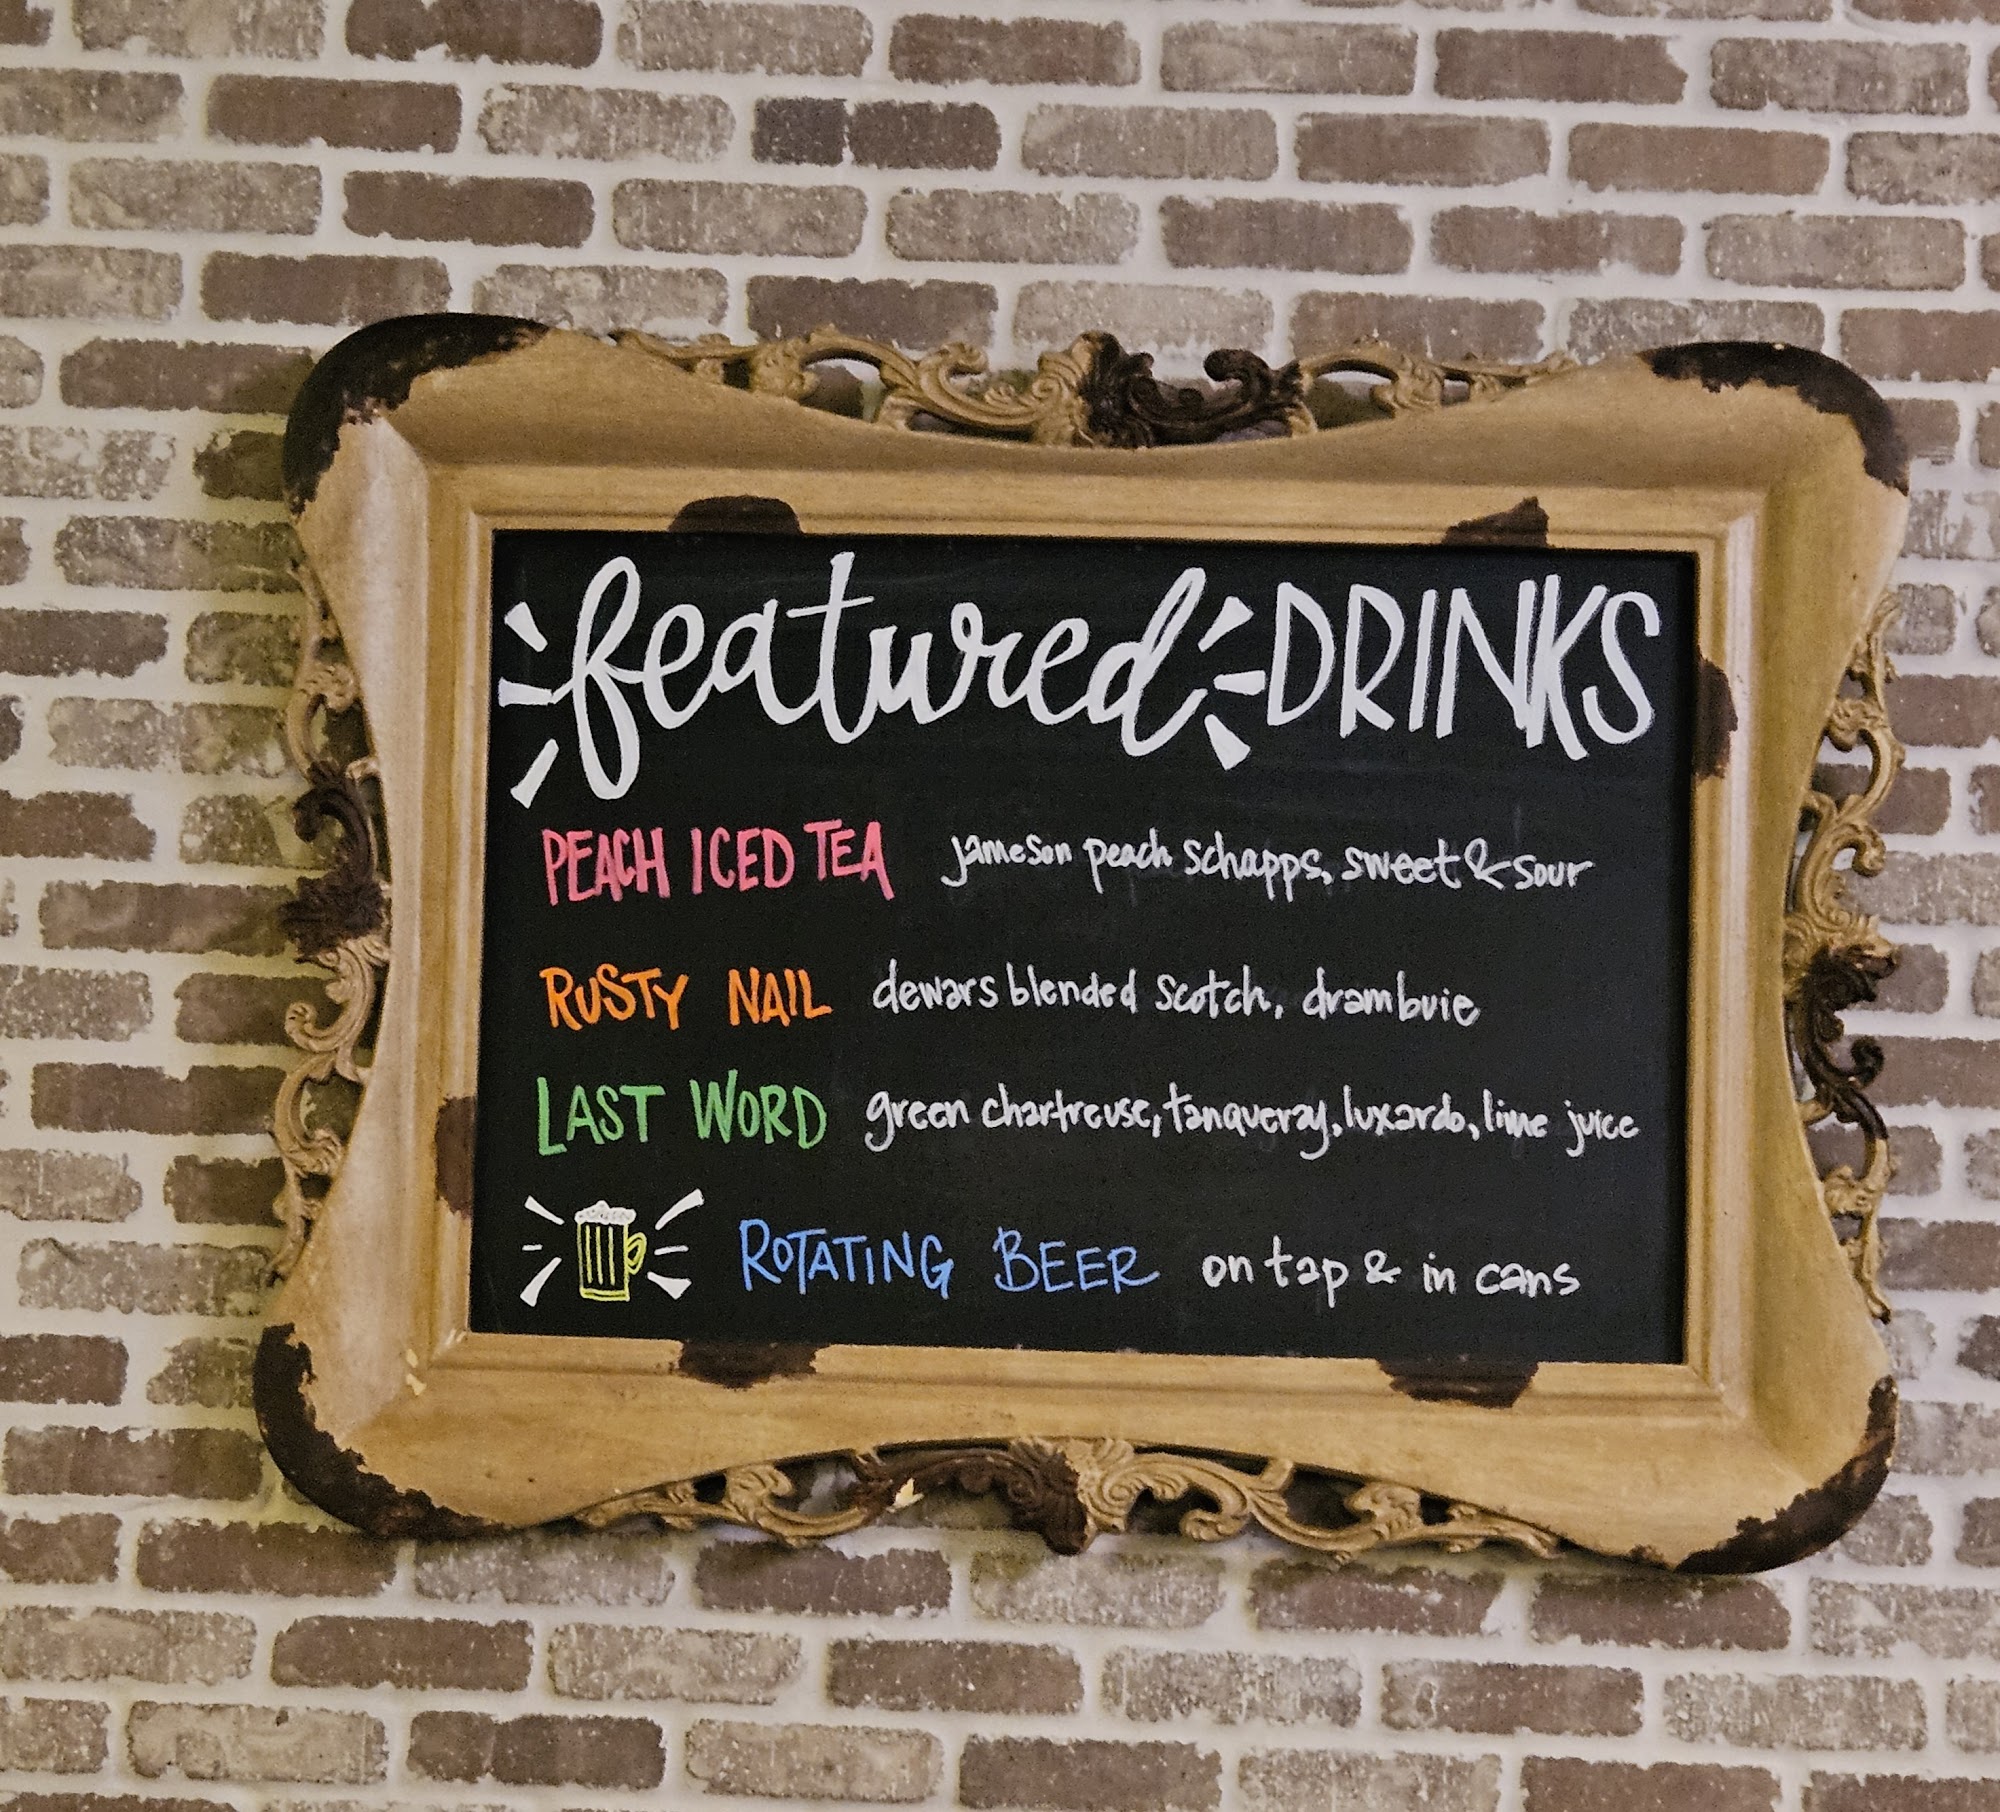 featured DRINKS
PEACH ICED TEA jameson peach schapps, sweet & sour
RUSTY NAIL dewars blended scotch, drambuie
LAST WORD green chartreuse, tanqueray, luxardo, lime juice
ROTATING BEER on tap & in cans